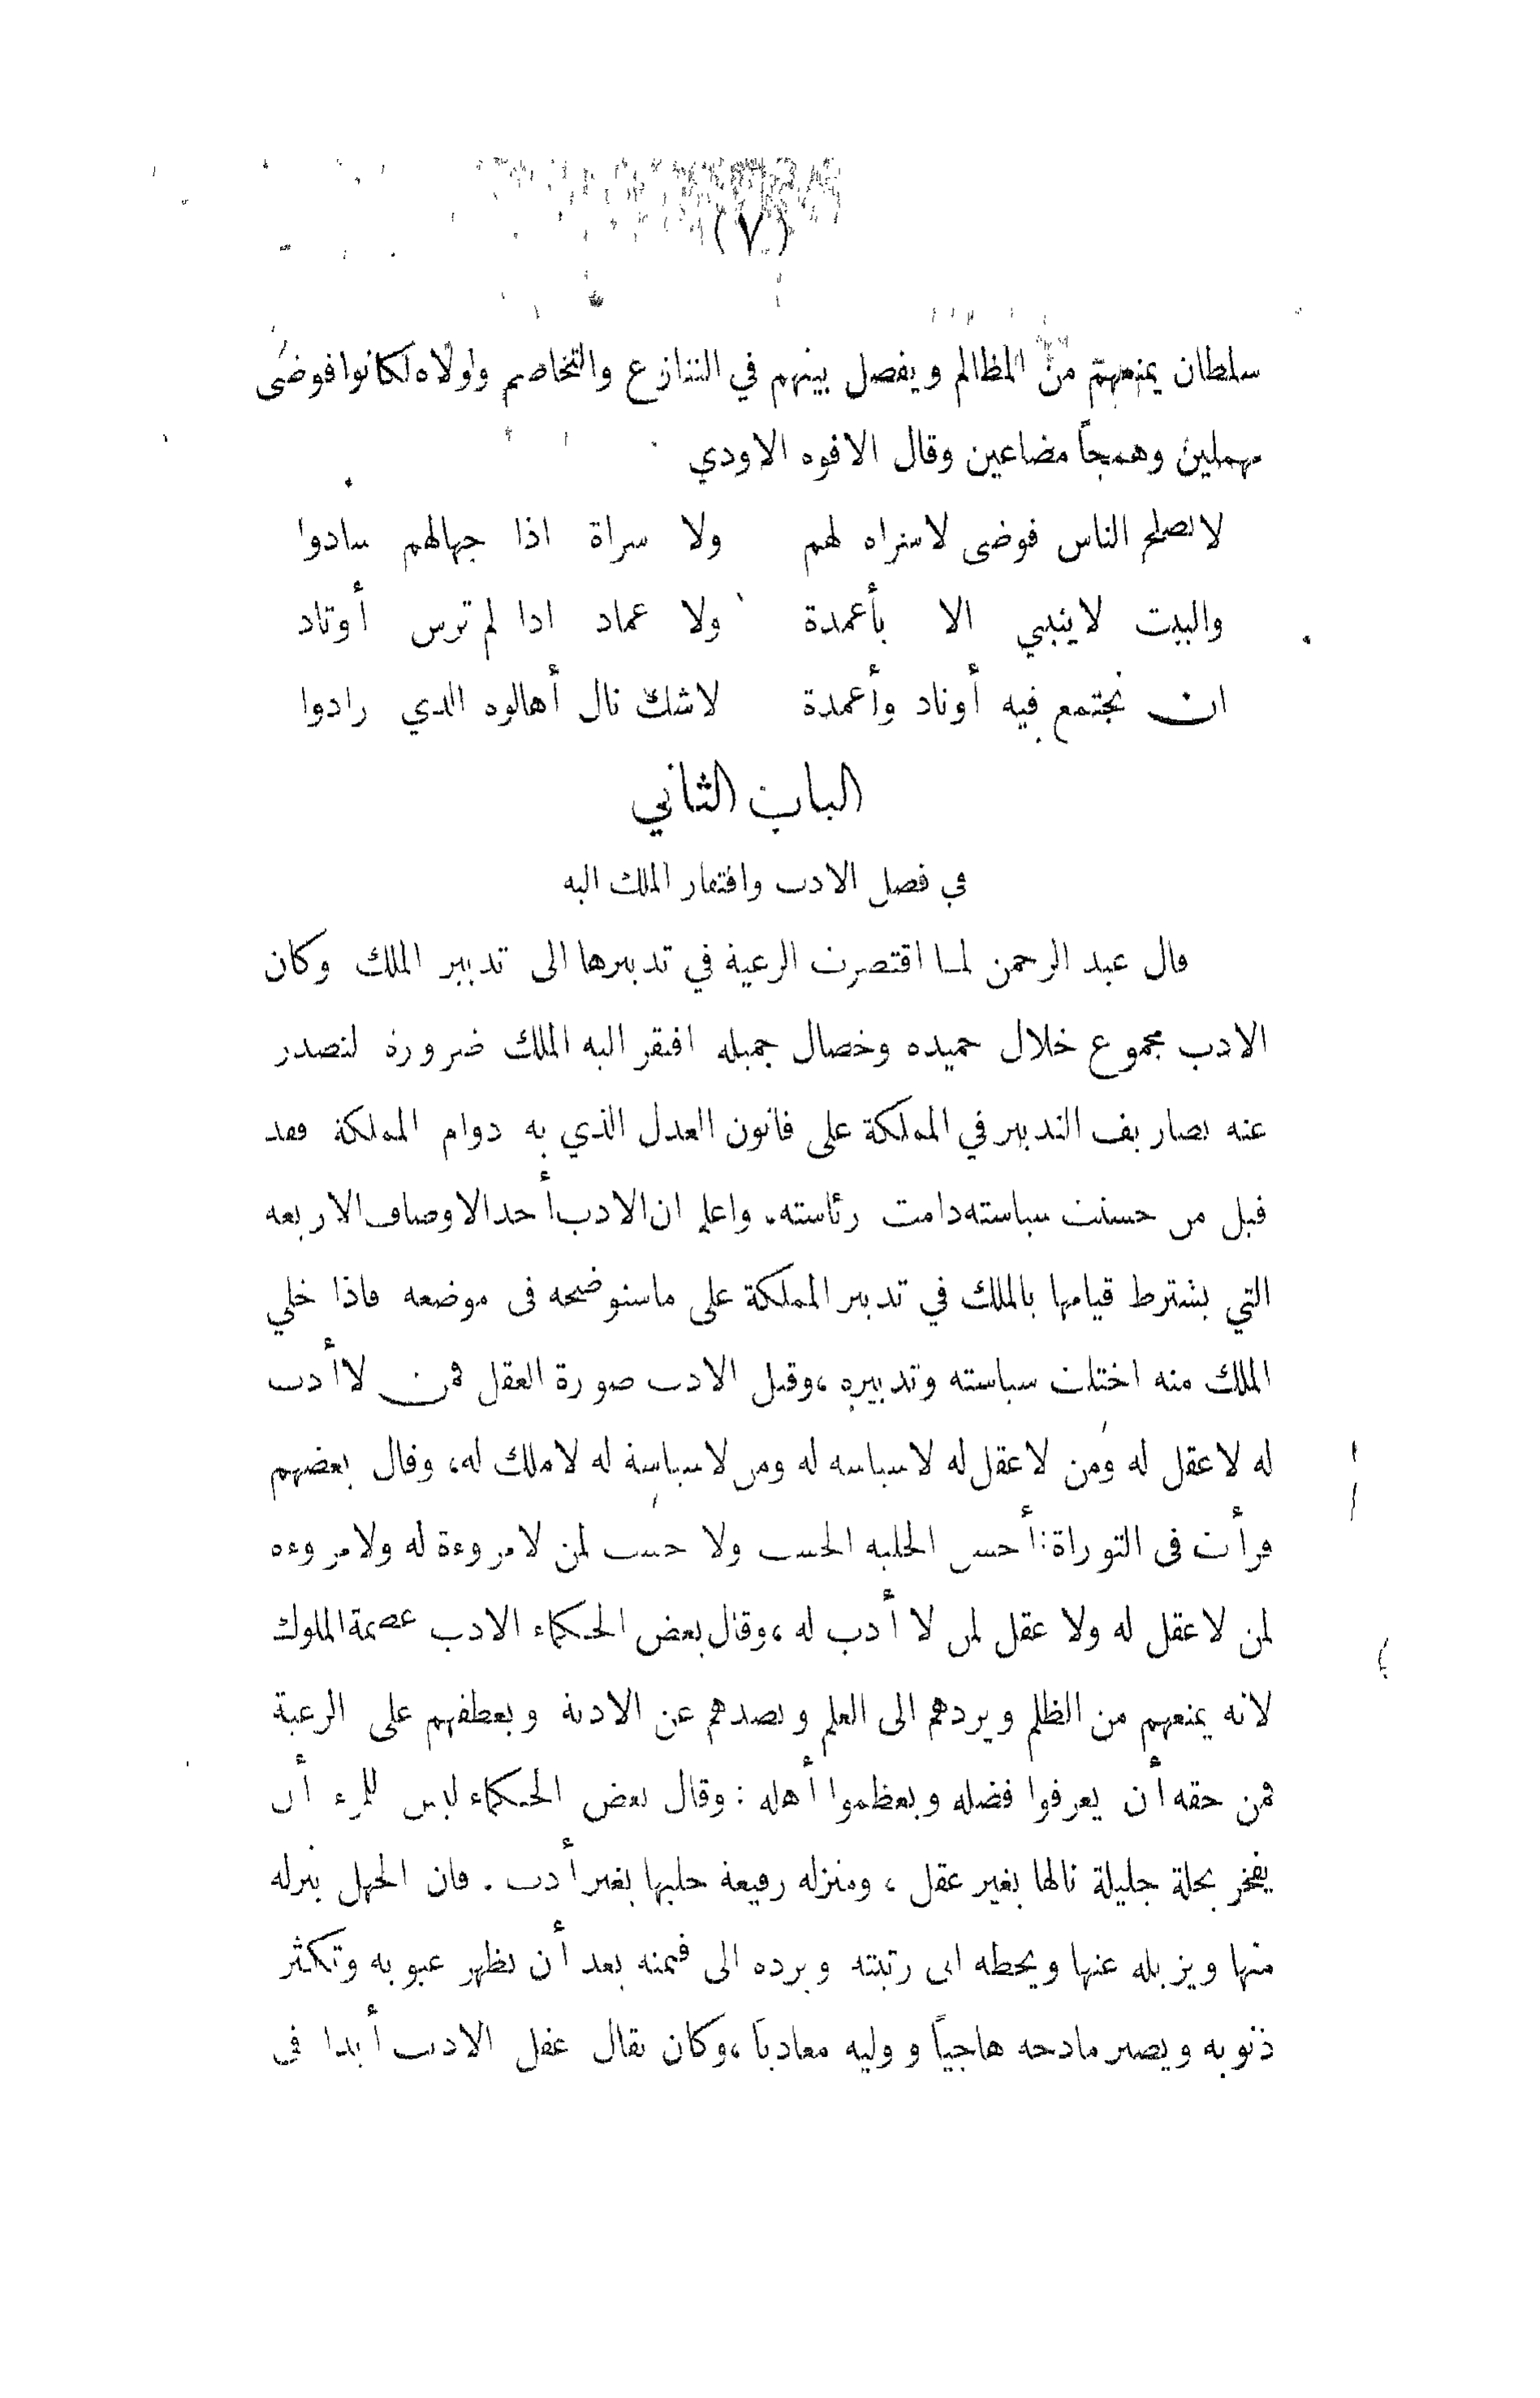 (٧)
سلطان يمنعهم من المظالم ويفصل بينهم في التنازع والتخاصم ولولاه لكانوا فوضى
مهملين وهمجاً مضاعين وقال الافوه الاودي
لا تصلح الناس فوضى لا سراة لهم ولا سراة اذا جهالهم سادوا
والبيت لا ينبني الا بأعمدة ولا عماد اذا لم ترس أوتاد
ان تجتمع فيه أوتاد وأعمدة لا شك نال أهالوه الذي رادوا
الباب الثاني
في فضل الادب وافتقار الملك اليه
قال عبد الرحمن لما اقتصرت الرعية في تدبيرها الى تدبير الملك وكان
الادب مجموع خلال حميدة وخصال جميلة افتقر اليه الملك ضرورة لتصدر
عنه تصاريف التدبير في المملكة على قانون العدل الذي به دوام المملكة فقد
قيل من حسنت سياسته دامت رئاسته. واعلم ان الادب أحد الاوصاف الاربعة
التي يشترط قيامها بالملك في تدبير المملكة على ما سنوضحه في موضعه فاذا خلي
الملك منه اختلت سياسته وتدبيره، وقيل الادب صورة العقل فمن لا أدب
له لا عقل له ومن لا عقل له لا سياسة له ومن لا سياسة له لا ملك له، وقال بعضهم
قرأت في التوراة: أحسن الحلية الحسب ولا حسب لمن لا مروءة له ولا مروءة
لمن لا عقل له ولا عقل لمن لا أدب له، وقال بعض الحكماء الادب عصمة الملوك
لانه يمنعهم من الظلم ويردهم الى العلم ويصدهم عن الاذية ويعطفهم على الرعية
فمن حقه أن يعرفوا فضله ويعظموا أهله : وقال بعض الحكماء ليس للمرء أن
يفخر بحلة جليلة نالها بغير عقل ، ومنزلة رفيعة حلها بغير أدب . فان الجهل ينزله
منها ويزيله عنها ويحطه الى رتبته ويرده الى قيمته بعد أن تظهر عيوبه وتكثر
ذنوبه ويصير مادحه هاجياً ووليه معادياً، وكان يقال عقل الادب أبدا في